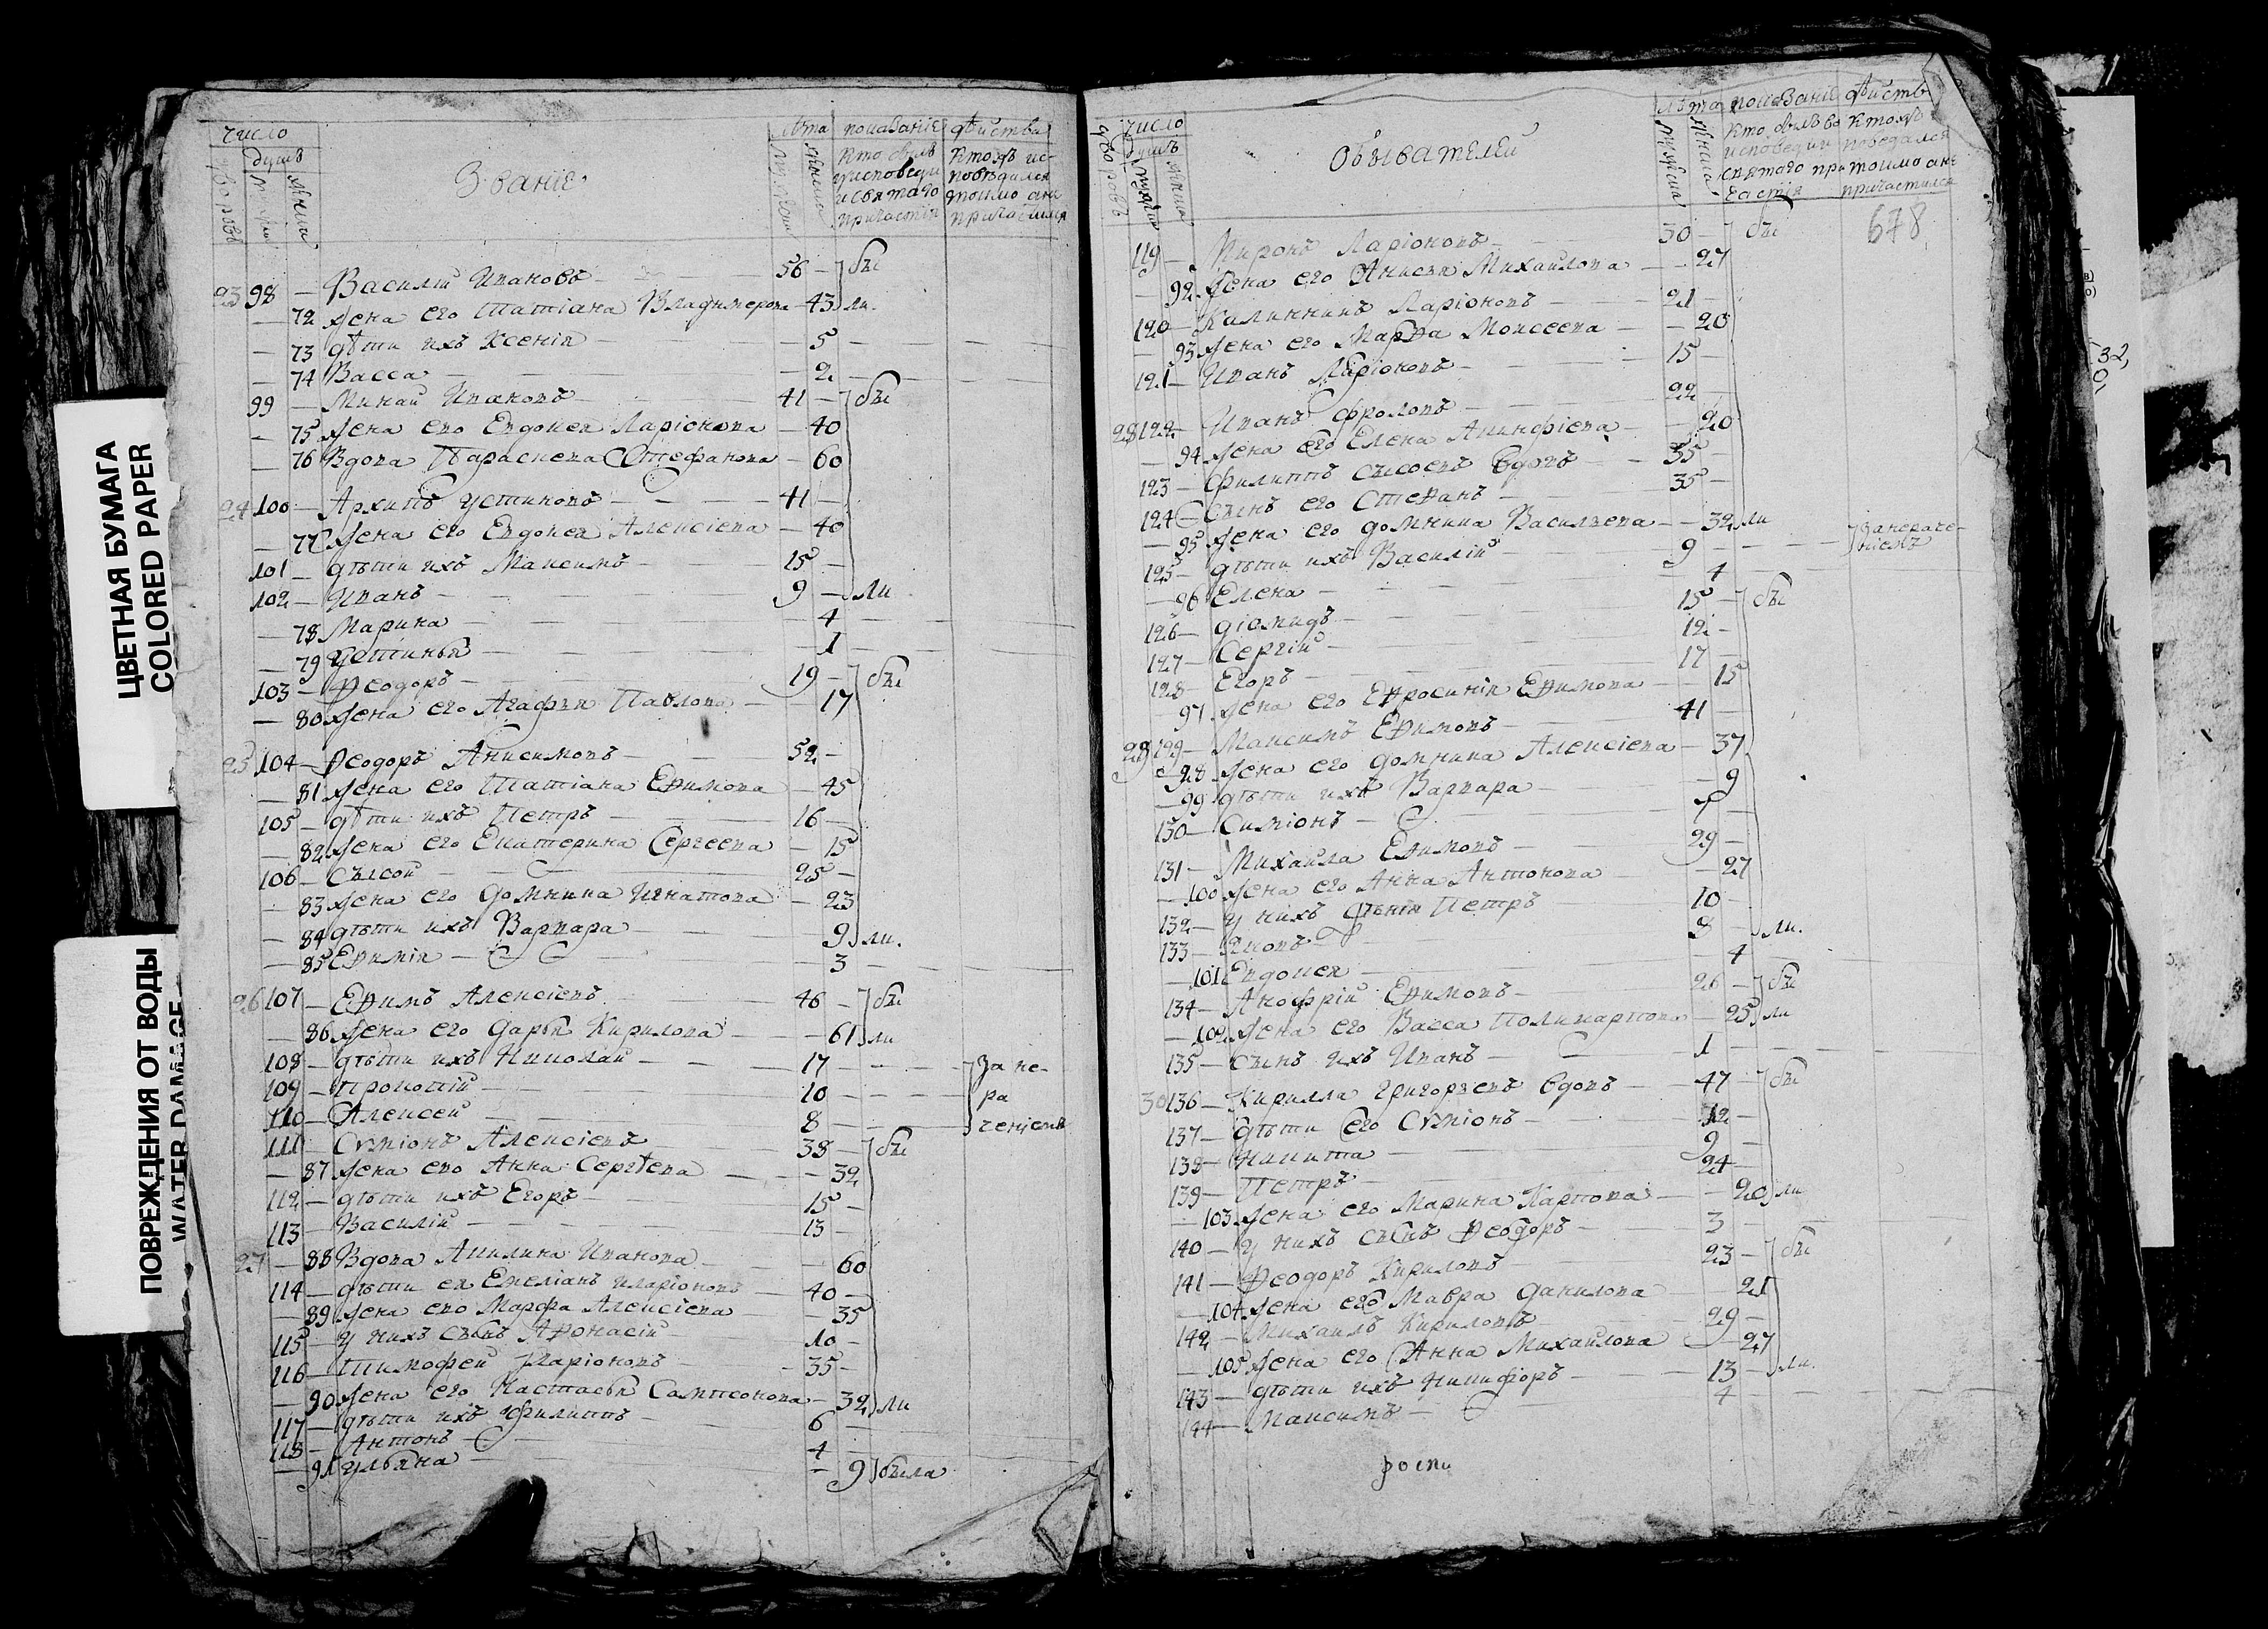 число
душъ
дворовъ
мужеска
женска
Званіе
лѣта
мужеска
женска
показаніе дѣйства
Кто былъ
у исповеди
и святаго
причастія
Ктожъ ис-
поведался
токмо а не
причастился
23 98 — Василій Ивановъ — 56 — бы
— 72 жена его Татіана Владимерова — 43 ли.
— 73 дѣти ихъ Ксенія — 5
— 74 Васса — 2
99 — Минай Ивановъ — 41 — бы
— 75 жена ево Евдокея Ларіонова — 40
— 76 Вдова Параскева Стефанова — 60
24 100 — Архипъ Устиновъ — 41
— 77 жена его Евдокея Алексіева — 40
101 — дѣти ихъ Максимъ — 15 —
102 — Иванъ — 9 — ли
— 78 Марина — 4
— 79 Устинья — 1
103 — Ѳеодоръ — 19 — бы
— 80 жена его Агафья Павлова — 17
25 104 — Ѳеодоръ Анисимовъ — 52 —
— 81 жена его Татіана Еѳимова — 45
105 — дѣти ихъ Петръ — 16 —
— 82 жена его Екатерина Сергеева — 15
106 — Сысой — 25 —
— 83 жена его Домникa Игнатова — 23
— 84 дѣти ихъ Варвара — 9 ли.
— 85 Еѳимія — 3
26 107 — Еѳимъ Алексіевъ — 46 — бы
— 86 жена его Дарья Кирилова — 61 ли
108 — дѣти ихъ Николай — 17 — За не-
109 — Прокопій — 10 — ра
110 — Алексей — 8 — ченіемъ
111 — Сѵміонъ Алексіевъ — 38 — бы
— 87 жена ево Анна Сергѣева — 32
112 — дѣти ихъ Егоръ — 15 —
113 — Василій — 13 —
27 — 88 Вдова Акилина Иванова — 60
114 — дѣти ея Емеліанъ Иларіоновъ — 40 —
— 89 жена ево Марфа Алексіева — 35
115 — У нихъ сынъ Аѳонасій — 10 —
116 — Тимофей Ларіоновъ — 35 —
— 90 жена его Настасья Сампсонова — 32 ли
117 — дѣти ихъ Филиппъ — 6
118 — Антонъ — 4 —
— 91 Ульяна — 9 была
число
душъ
дворовъ
мужеска
женска
Обывателей
лѣта
мужеска
женска
показаніе дѣйств
Кто былъ во
исповеди и
святаго при
частія
Ктожъ
поведался
токмо а не
причастился
678
119 — Миронъ Ларіоновъ — 30 — бы
— 92 жена его Анисья Михайлова — 27
120 — Калинникъ Ларіоновъ — 21
— 93 жена его Марѳа Моисеева — 20
121 — Иванъ Ларіоновъ — 15 —
28 122 — Иванъ Фроловъ — 22
— 94 жена его Елена Акинфіева — 20
123 — Филиппъ Сысоевъ вдовъ — 55 —
124 — Сынъ его Стеѳанъ — 35 —
— 95 жена его Домника Васильева — 32 ли
125 — дѣти ихъ Василій — 9 — Занераче-
ніемъ
— 96 Елена — 4
126 — Діомидъ — 15 — бы
127 — Сергій — 12 —
128 — Егоръ — 17
— 97 жена его Еѳросинія Еѳимова — 15
29 129 — Максимъ Еѳимовъ — 41 —
— 98 жена его Домника Алексіева — 37
— 99 дѣти ихъ Варвара — 9
130 — Симіонъ — 7 —
131 — Михайла Еѳимовъ — 29 —
— 100 жена его Анна Антонова — 27
132 — У нихъ дѣти Петръ — 10 —
133 — Яковъ — 8 — ли.
— 101 Евдокея — 4
134 — Анофрій Еѳимовъ — 26 — бы
— 102 жена его Васса Поликарпова — 25 ли
135 — сынъ ихъ Иванъ — 1
30 136 — Кирилла Григорьевъ вдовъ — 47 — бы
137 — дѣти его Сѵміонъ — 12 —
138 — Никита — 9 —
139 — Петръ — 24 —
— 103 жена его Марина Карпова — 20 ли
140 — У нихъ сынъ Ѳеодоръ — 3
141 — Ѳеодоръ Кириловъ — 23 — бы
— 104 жена его Мавра Данилова — 21
142 — Михаилъ Кириловъ — 29 —
— 105 жена его Анна Михайлова — 27
143 — дѣти ихъ Никифоръ — 13 — ли.
144 — Максимъ — 4
роспи
ЦВЕТНАЯ БУМАГА
COLORED PAPER
ПОВРЕЖДЕНИЯ ОТ ВОДЫ
WATER DAMAGE